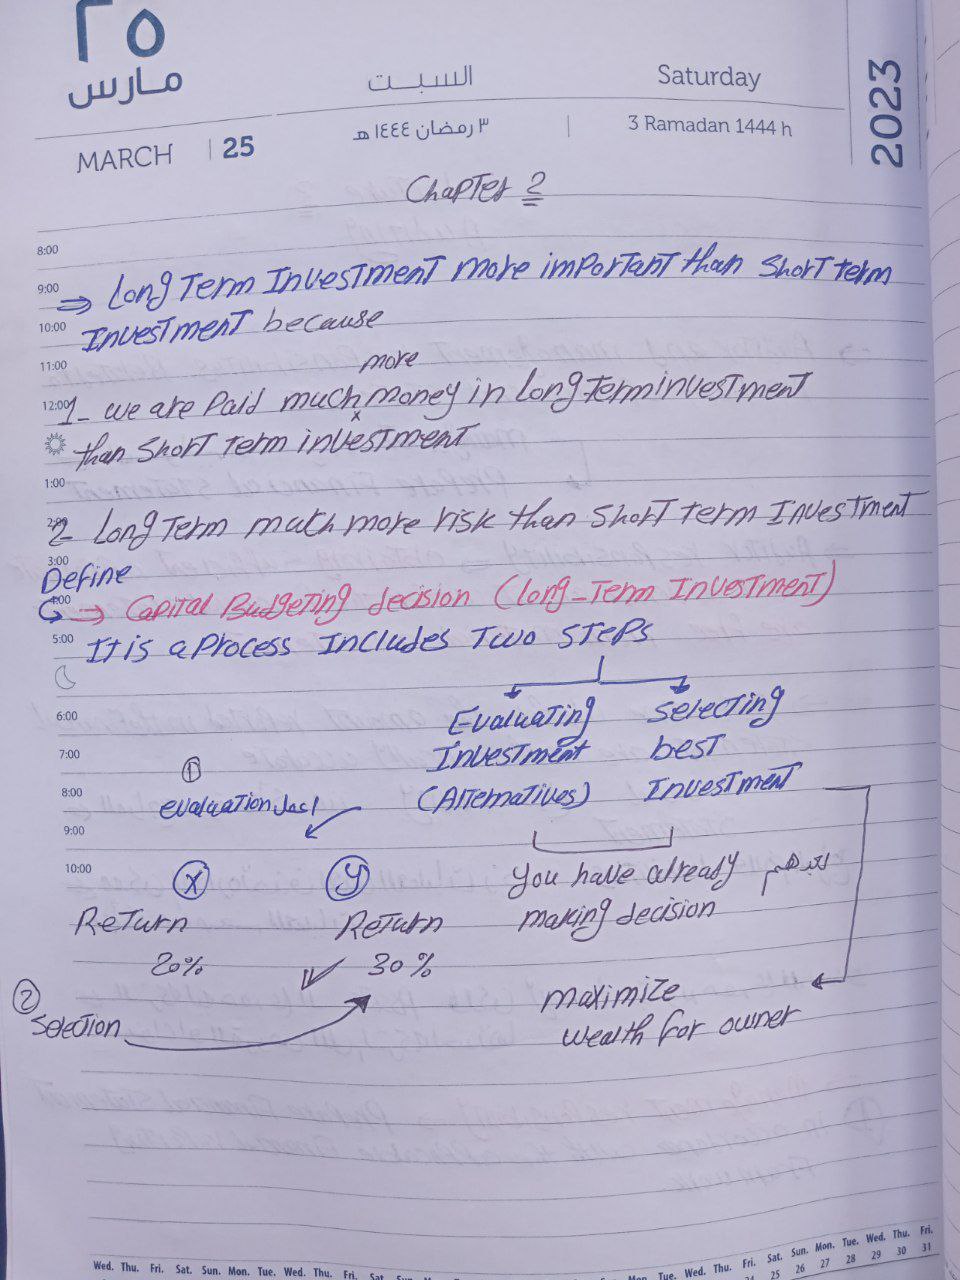 ٢٥
مارس
السبت
Saturday
2023
MARCH | 25
٣ رمضان ١٤٤٤ هـ | 3 Ramadan 1444 h
Chapter 2
8:00
9:00 ⇒ Long Term Investment more important than short term
10:00 Investment because
11:00 more
12:00 1- we are Paid much x money in Long Term investment
than short term investment
1:00
2:00 2- Long Term much more risk than short term Investment
3:00
Define
4:00 ⇒ Capital Budgeting decision (long-Term Investment)
5:00 It is a Process Includes Two steps
6:00 Evaluating Selecting
7:00 Investment best
8:00 (Alternatives) Investment
①
evaluation اعمل
9:00
10:00 X Y You have already
making decision
Return Return
20% 30%
② Selection
maximize
wealth for owner
Wed. Thu. Fri. Sat. Sun. Mon. Tue. Wed. Thu. Fri. Sat. Sun. Mon. Tue. Wed. Thu. Fri. Sat. Sun. Mon. Tue. Wed. Thu. Fri.
24 25 26 27 28 29 30 31